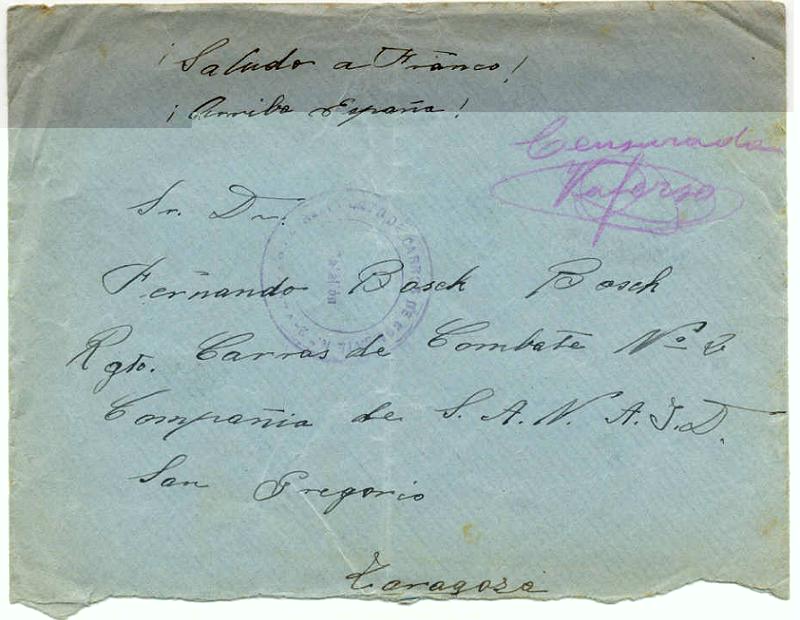 ¡Saludo a Franco!
¡Arriba España!
Censurada
Sr. Dn.
Fernando Bosch Bosch
Rgto. Carros de Combate Nº 2
Compañia de S. A. N. A. I. D.
San Gregorio
Zaragoza
CARROS DE